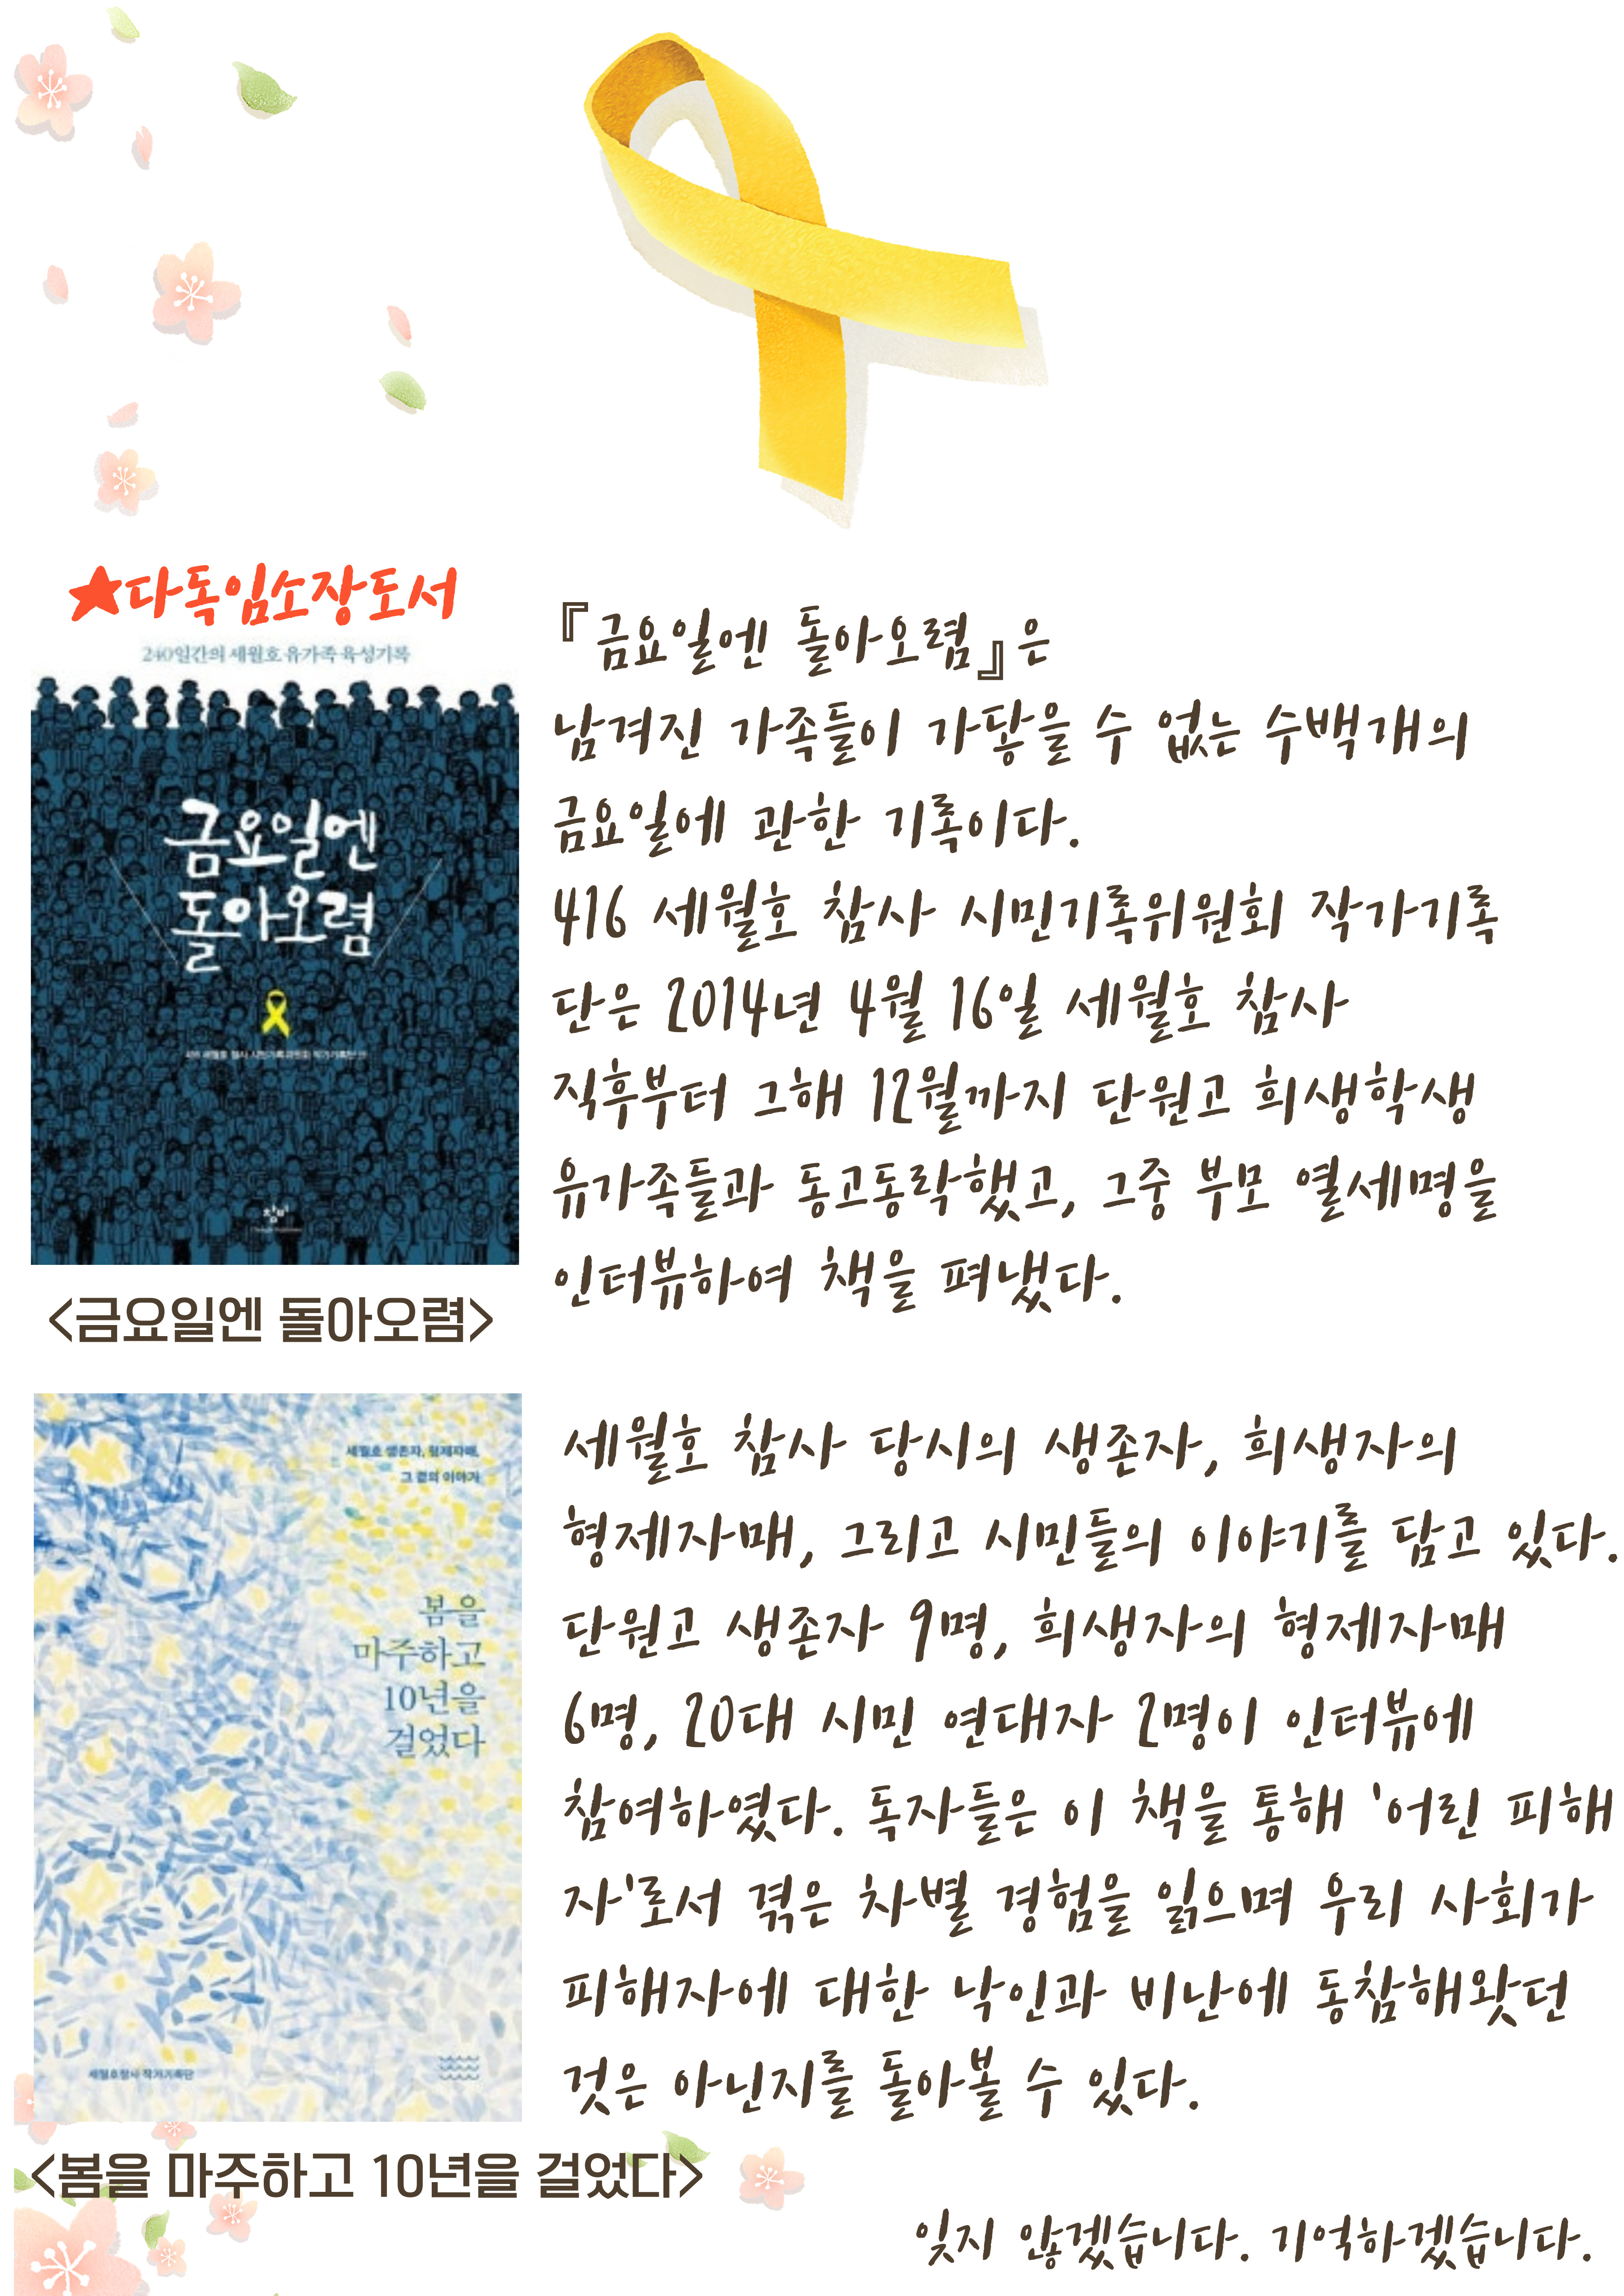 ★다독임소장도서
240일간의 세월호 유가족 육성기록
금요일엔
돌아오렴
416 세월호 참사 시민기록위원회 작가기록단
창비
<금요일엔 돌아오렴>
『금요일엔 돌아오렴』은
남겨진 가족들이 가닿을 수 없는 수백개의
금요일에 관한 기록이다.
416 세월호 참사 시민기록위원회 작가기록
단은 2014년 4월 16일 세월호 참사
직후부터 그해 12월까지 단원고 희생학생
유가족들과 동고동락했고, 그중 부모 열세명을
인터뷰하여 책을 펴냈다.
세월호 생존자, 형제자매,
그 곁의 이야기
봄을
마주하고
10년을
걸었다
세월호참사 작가기록단
<봄을 마주하고 10년을 걸었다>
세월호 참사 당시의 생존자, 희생자의
형제자매, 그리고 시민들의 이야기를 담고 있다.
단원고 생존자 9명, 희생자의 형제자매
6명, 20대 시민 연대자 2명이 인터뷰에
참여하였다. 독자들은 이 책을 통해 '어린 피해
자'로서 겪은 차별 경험을 읽으며 우리 사회가
피해자에 대한 낙인과 비난에 동참해왓던
것은 아닌지를 돌아볼 수 있다.
잊지 않겠습니다. 기억하겠습니다.